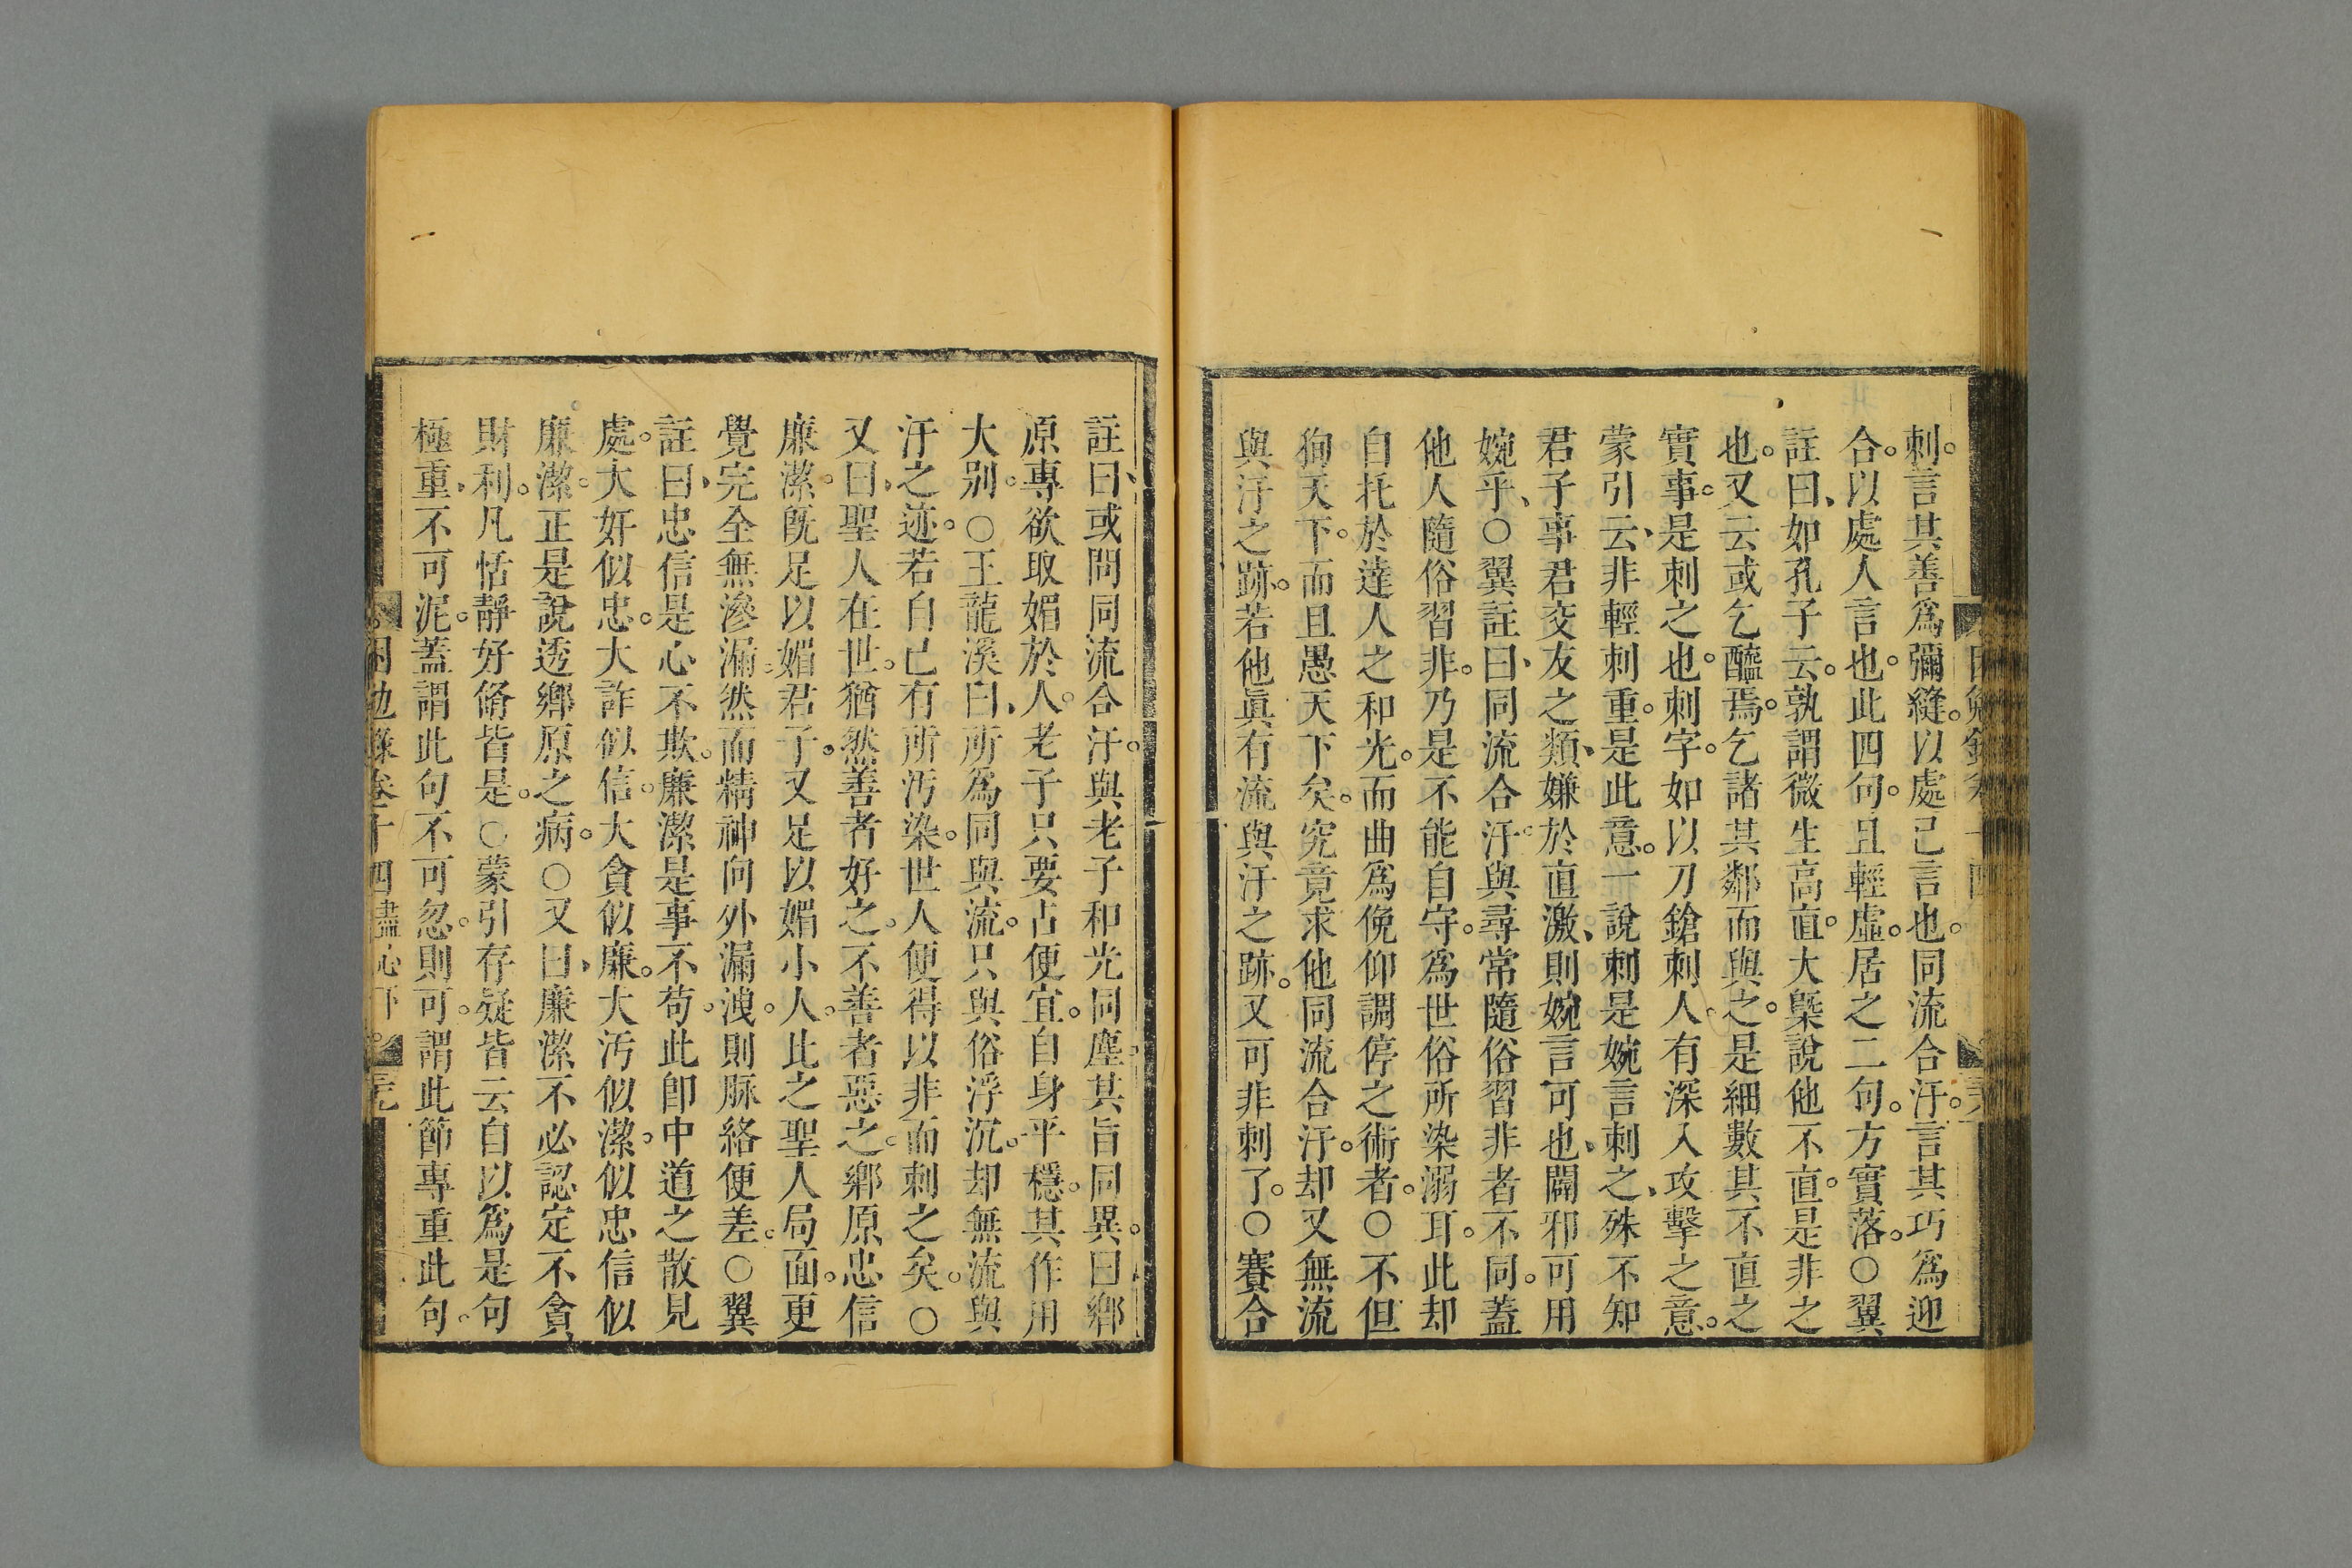 刺。言其善爲彌縫。以處己言也。同流合汙。言其巧爲迎
合。以處人言也。此四句。且輕虛。居之二句。方實落。○翼
註曰、如孔子云。孰謂微生高直。大槩說他不直。是非之
也。又云或乞醯焉。乞諸其鄰而與之。是細數其不直之
實事。是刺之也。刺字。如以刀鎗刺人。有深入攻擊之意。
蒙引云、非輕刺重。是此意。一說刺是婉言刺之、殊不知
君子事君交友之類、嫌於直激、則婉言可也、闢邪可用
婉乎、○翼註曰、同流合汙。與尋常隨俗習非者不同。蓋
他人隨俗習非。乃是不能自守。爲世俗所染溺耳。此却
自托於達人之和光。而曲爲俛仰調停之術者。○不但
狥天下。而且愚天下矣。究竟求他同流合汙。却又無流
與汙之跡。若他眞有流與汙之跡。又可非刺了。○賽合
註曰、或問同流合汙。與老子和光同塵。其旨同異。曰鄉
原專欲取媚於人。老子只要占便宜。自身平穩。其作用
大别。○王龍溪曰、所爲同與流。只與俗浮沉。却無流與
汙之迹。若自己有所汚染。世人便得以非而刺之矣。○
又曰、聖人在世。猶然善者好之。不善者惡之。鄉原忠信
廉潔。旣足以媚君子。又足以媚小人。比之聖人局面。更
覺完全無滲漏。然而精神向外漏洩。則脈絡便差。○翼
註曰、忠信是心不欺。廉潔是事不苟。此卽中道之散見
處。大奸似忠。大詐似信。大貪似廉。大汚似潔。似忠信似
廉潔。正是說透鄉原之病。○又曰、廉潔不必認定不貪
財利。凡恬靜好脩皆是。○蒙引存疑皆云自以爲是句
極重、不可泥。蓋謂此句不可忽。則可。謂此節專重此句。
困勉錄卷十四盡心下 三九